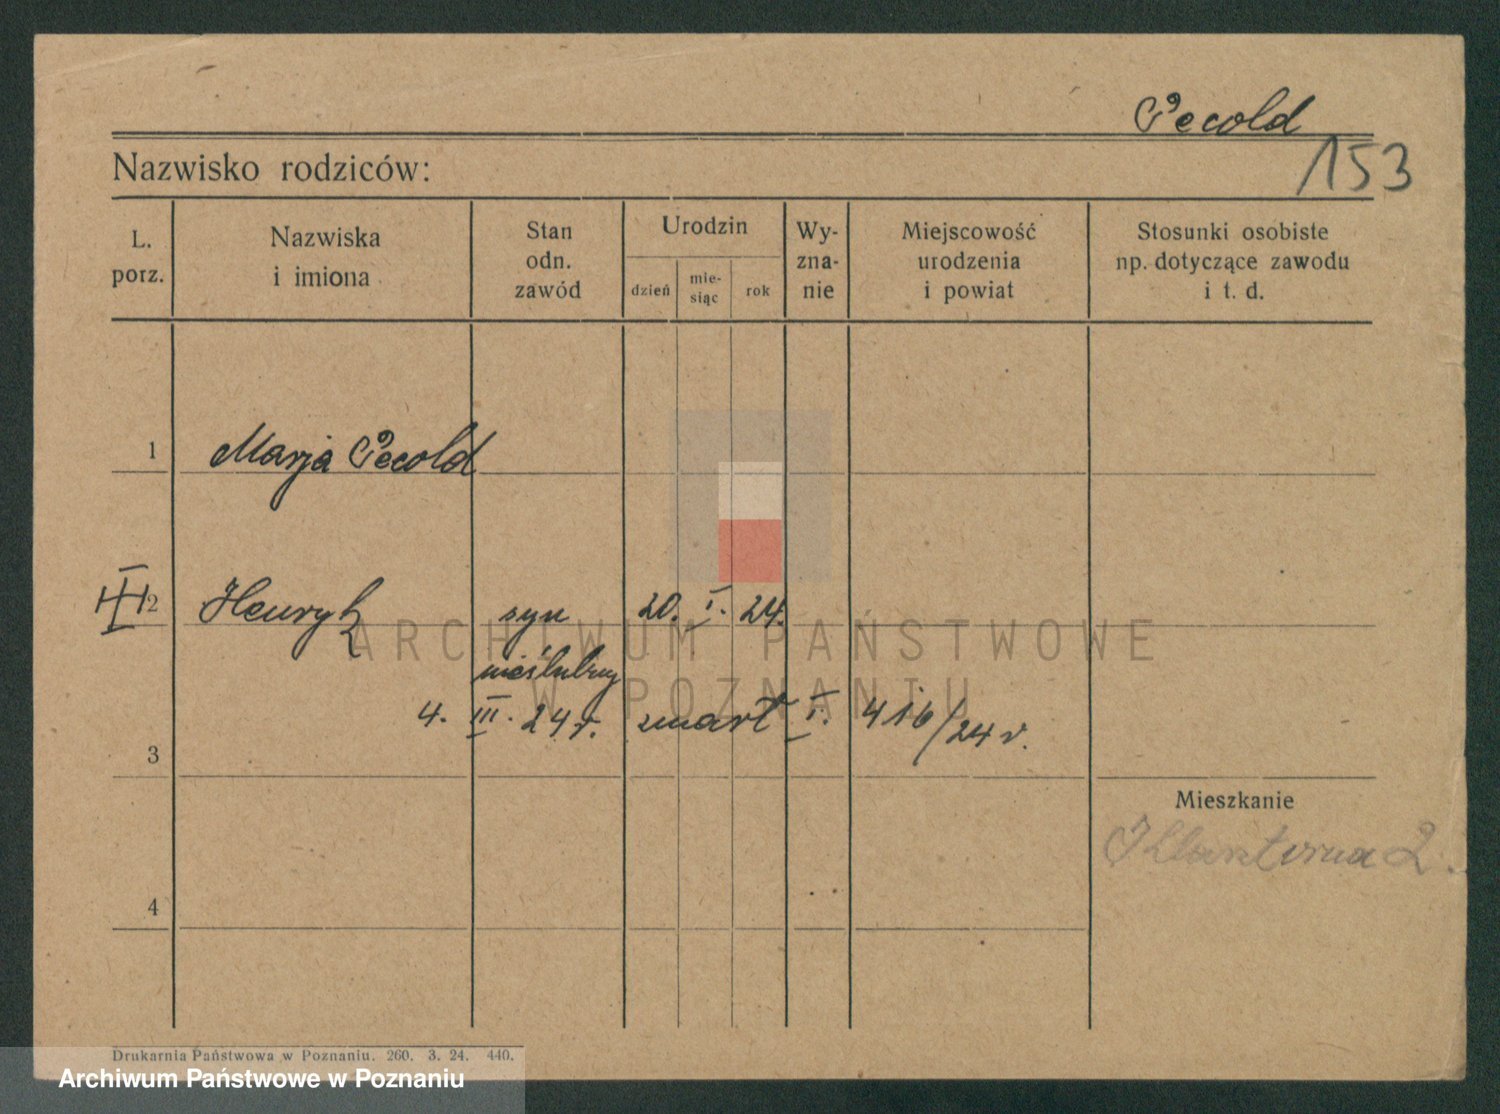 Pecold
153
Nazwisko rodziców:
L. porz.
Nazwiska i imiona
Stan odn. zawód
Urodzin
dzień
mie-
siąc
rok
Wy-
zna-
nie
Miejscowość
urodzenia
i powiat
Stosunki osobiste
np. dotyczące zawodu
i t. d.
1 Marja Pecold
2 Henryk syn 20. I. 24.
nieślubny
4. III. 24 r. zmarł I. 416/24 r.
3
Mieszkanie
2.
4
Drukarnia Państwowa w Poznaniu. 260. 3. 24. 440.
ARCHIWUM PAŃSTWOWE
W POZNANIU
Archiwum Państwowe w Poznaniu